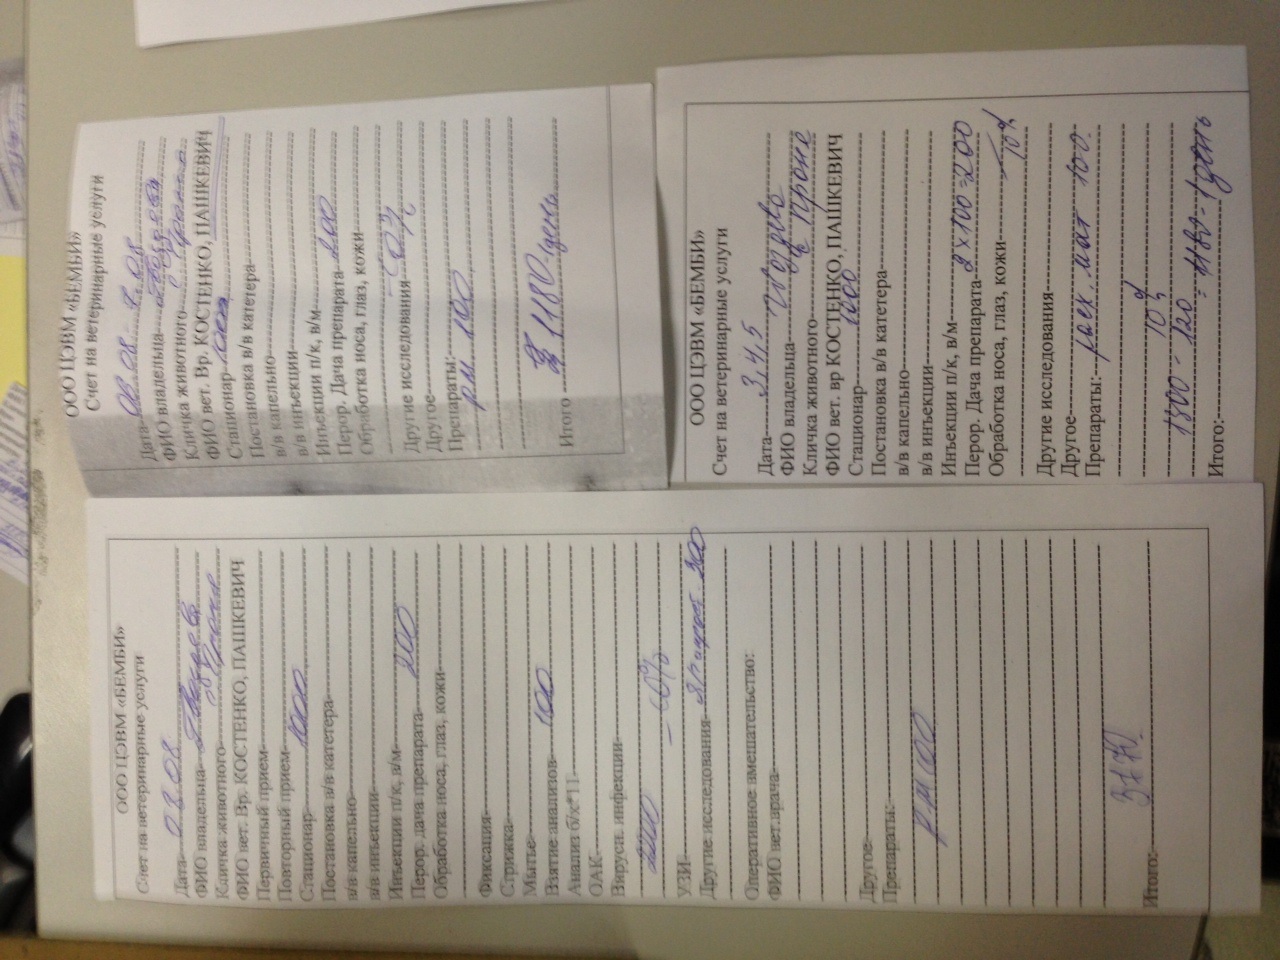 ООО ЦЭВМ «БЕМБИ»
Счет на ветеринарные услуги
Дата
ФИО владельца
Кличка животного
ФИО вет. Вр. КОСТЕНКО, ПАШКЕВИЧ
Стационар
Постановка в/в катетера
в/в капельно
в/в инъекции
Инъекции п/к, в/м
Перор. Дача препарата 200
Обработка носа, глаз, кожи
Другие исследования
Другое
Препараты:
РМ 100
Итого 1180-1день
ООО ЦЭВМ «БЕМБИ»
Счет на ветеринарные услуги
Дата 3,4,5
ФИО владельца
Кличка животного
ФИО вет. вр КОСТЕНКО, ПАШКЕВИЧ
Стационар 1000
Постановка в/в катетера
в/в капельно
в/в инъекции
Инъекции п/к, в/м
Перор. Дача препарата 2х100=200
Обработка носа, глаз, кожи 10%
Другие исследования
Другое
Препараты: расх. мат 100
10%
1300 - 120 = 1180 - 1день
Итого:
ООО ЦЭВМ «БЕМБИ»
Счет на ветеринарные услуги
Дата 02.08
ФИО владельца
Кличка животного
ФИО вет. Вр. КОСТЕНКО, ПАШКЕВИЧ
Первичный прием
Повторный прием
Стационар 1000
Постановка в/в катетера
в/в капельно
в/в инъекции
Инъекции п/к, в/м
Перор. дача препарата 200
Обработка носа, глаз, кожи
Фиксация
Стрижка
Мытье
Взятие анализов
Анализ б/х*11
ОАК
Вирусн. инфекции
УЗИ
Другие исследования
Оперативное вмешательство:
ФИО вет.врача
Другое
Препараты:
РМ 100
Итого: